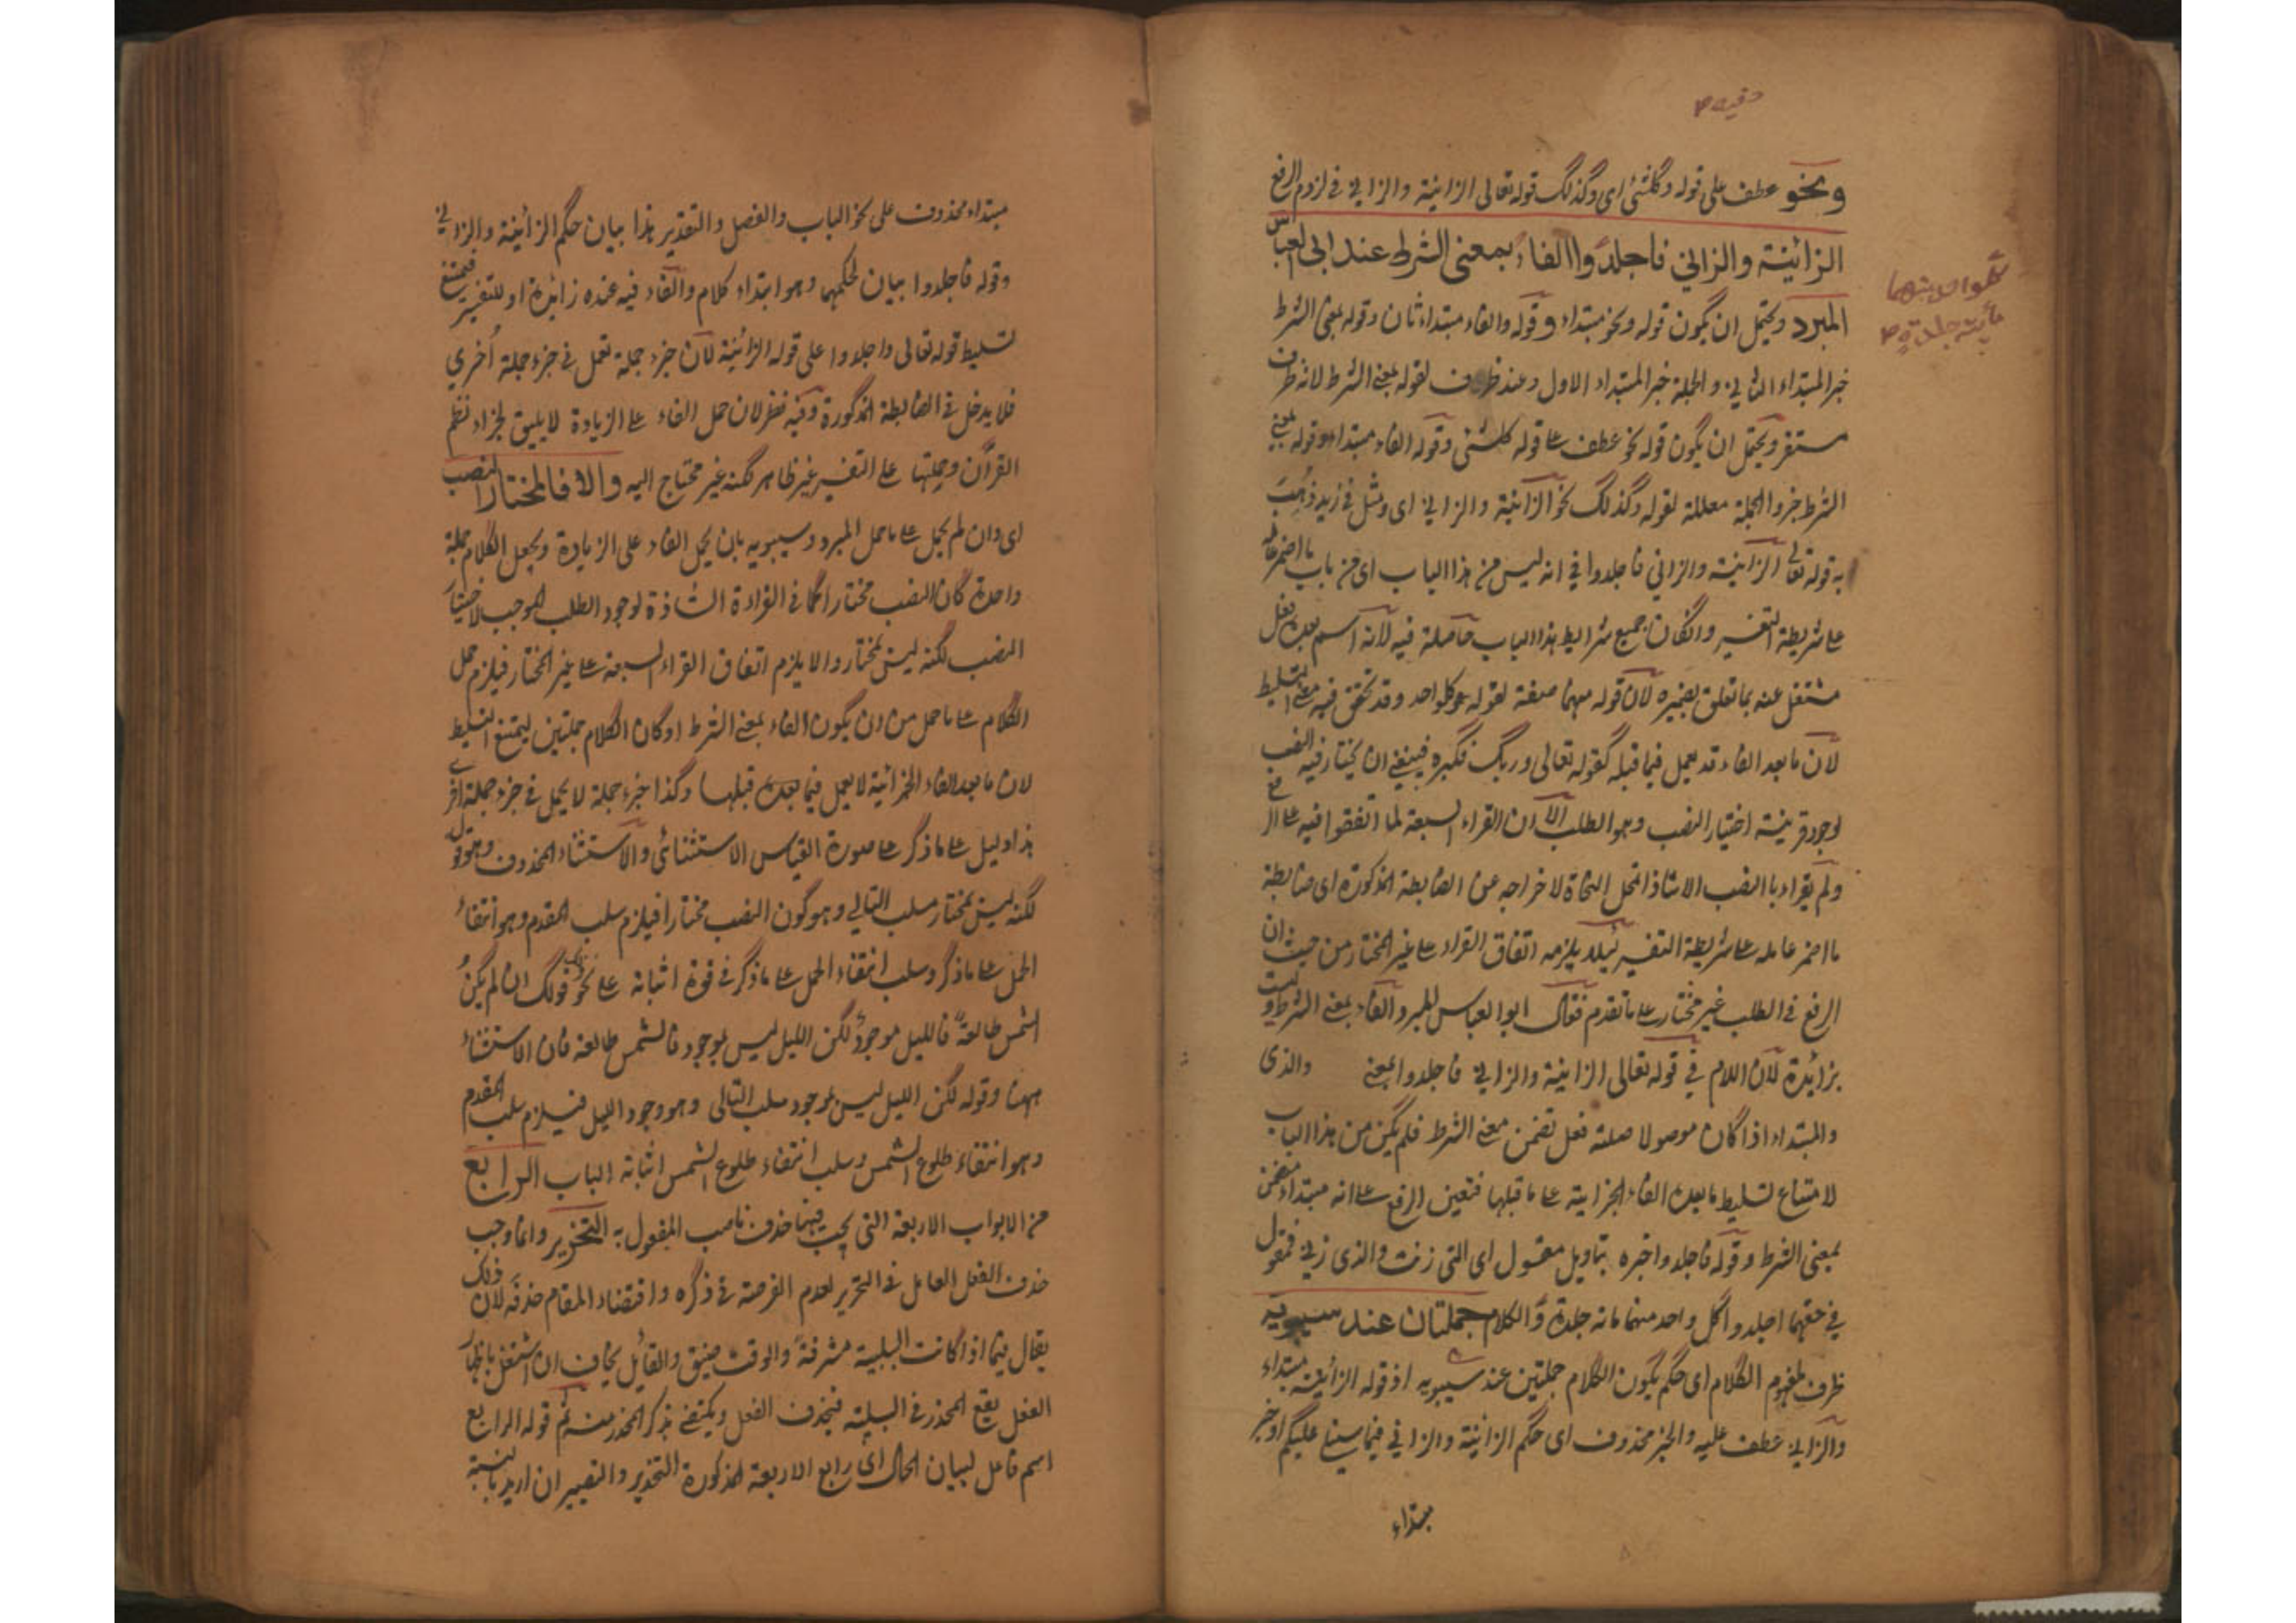 ونحو عطف على قوله وكلشئ اى وكذلك قوله تعالى الزانية والزاني في لزوم الرفع
الزانية والزاني فاجلدوا الفاء بمعنى الشرط عند ابى العباس
المبرد ويحتمل ان يكون قوله ونحو مبتداء وقوله والفاء مبتداء ثان وقوله بمعنى الشرط
خبر المبتداء الثاني والجملة خبر المبتداء الاول وعند ظرف لقوله بمعنى الشرط لانه ظرف
مستقر ويحتمل ان يكون قوله نحو عطف على قوله كلشئ وقوله الفاء مبتداء وقوله بمعنى
الشرط خبر والجملة معللة لقوله وكذلك نحو الزانية والزاني اى ومثل في ازيد ذهب
به قوله تعالى الزانية والزاني فاجلدوا في انه ليس من هذا الباب اى من باب ما اضمر عامله
على شريطة التفسير وان كان جميع شرايط هذا الباب حاصلة فيه لانه اسم بعده فعل
مشتغل عنه بما تعلق بضميره لان قوله منهما صفة لقوله كل واحد وقد تحقق فيه معنى التسليط
لان ما بعد الفاء قد يعمل فيما قبله كقوله تعالى وربك فكبر فينبغي ان يختار فيه النصب
لوجود قرينة اختيار النصب وهو الطلب الا ان القراء السبعة لما اتفقوا فيه على الرفع
ولم يقراء بالنصب الا شاذا تمحل النحاة لاخراجه عن الضابطة المذكورة اى ضابطة
ما اضمر عامله على شريطة التفسير لئلا يلزمه اتفاق القراء على غير المختار من حيث ان
الرفع في الطلب غير مختار على ما تقدم فقال ابو العباس المبرد الفاء بمعنى الشرط وليست
بزائدة لان اللام في قوله تعالى الزانية والزاني فاجلدوا بمعنى والذى
والمبتداء اذا كان موصولا صلته فعل تضمن معنى الشرط فلم يكن من هذا الباب
لامتناع تسليط ما بعد الفاء الجزائية على ما قبلها فتعين الرفع على انه مبتداء متضمن
بمعنى الشرط وقوله فاجلدوا خبره بتاويل مقول اى التى زنت والذى زنى فمقول
في حقهما اجلدوا كل واحد منهما مائة جلدة والكلام جملتان عند سيبويه
ظرف لمفهوم الكلام اى حكم يكون الكلام جملتين عند سيبويه اذ قوله الزانية مبتداء
والزاني عطف عليه والخبر محذوف اى حكم الزانية والزاني فيما سيتلى عليكم او خبر
مبتداء
مبتداء محذوف على نحو الباب والفصل والتقدير هذا بيان حكم الزانية والزاني
وقوله فاجلدوا بيان لحكمهما وهو ابتداء كلام والفاء فيه عنده زائدة او للتفسير فيمتنع
تسليط قوله تعالى واجلدوا على قوله الزانية لان جزء جملة تعمل في جزء جملة أخري
فلا يدخل في الضابطة المذكورة وفيه نظر لان حمل الفاء على الزيادة لا يليق لجزاء نظم
القرآن وحملها على التفسير غير ظاهر لكنه غير محتاج اليه والا فالمختار النصب
اى وان لم يحمل على ما حمل المبرد وسيبويه بان يحمل الفاء على الزيادة ويجعل الكلام جملة
واحدة كان النصب مختارا كما في القراءة الشاذة لوجود الطلب الموجب لاختيار
النصب لكنه ليس بمختار والا يلزم اتفاق القراء السبعة على غير المختار فيلزم حمل
الكلام على ما حمل من ان يكون الفاء بمعنى الشرط او كان الكلام جملتين ليمتنع التسليط
لان ما بعد الفاء الجزائية لا يعمل فيما قبلها وكذا جزء جملة لا يعمل في جزء جملة اخرى
هذا دليل على ما ذكر على صورة القياس الاستثنائى والاستثناء المحذوف وهو قوله
لكنه ليس بمختار سلب التالي وهو كون النصب مختارا فيلزم سلب المقدم وهو انتفاء
الحمل على ما ذكر وسلب انتفاء الحمل على ما ذكر في قوة اثباته على نحو قولك ان لم يكن
الشمس طالعة فالليل موجود لكن الليل ليس بموجود فالشمس طالعة فان الاستثناء
ههنا وقوله لكن الليل ليس بموجود سلب التالى وهو وجود الليل فيلزم سلب المقدم
وهو انتفاء طلوع الشمس وسلب انتفاء طلوع الشمس اثباته الباب الرابع
من الابواب الاربعة التى يجب فيها حذف ناصب المفعول به التحذير وانما وجب
حذف الفعل العامل في التحذير لعدم الفرصة في ذكره واقتضاء المقام حذفه لان ذلك
يقال فيما اذا كانت البلية مشرفة والوقت ضيق والقائل يخاف ان اشتغل باظهار
الفعل يقع المحذر في البلية فيحذف الفعل ويكتفى بذكر المحذر منه ثم قوله الرابع
اسم فاعل لبيان الحال اى رابع الاربعة المذكورة التحذير والتصيير ان اريد بالنسبة